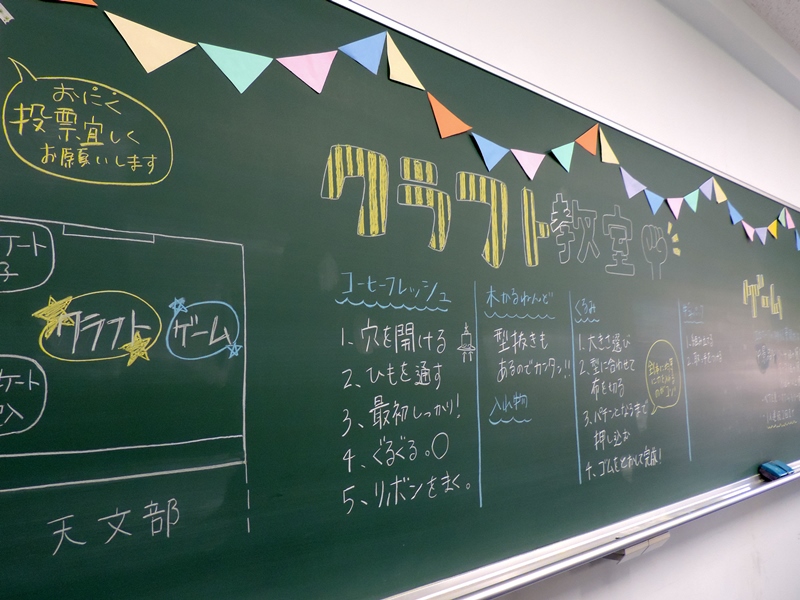 おにく
投票宜しく
お願いします
ケート
クラフト
ゲーム
ケート
天文部
クラフト教室
コーヒーフレッシュ
1、穴を開ける
2、ひもを通す
3、最初しっかり!
4、ぐるぐる。○
5、リボンをまく。
木かるねんど
型抜きも
あるのでカンタン!!
入れ物
くるみ
1.大きさ選び
2.型に合わせて
布を切る
3.パチンとなるまで
押し込む
4.ゴムをとおして完成!
ゲーム